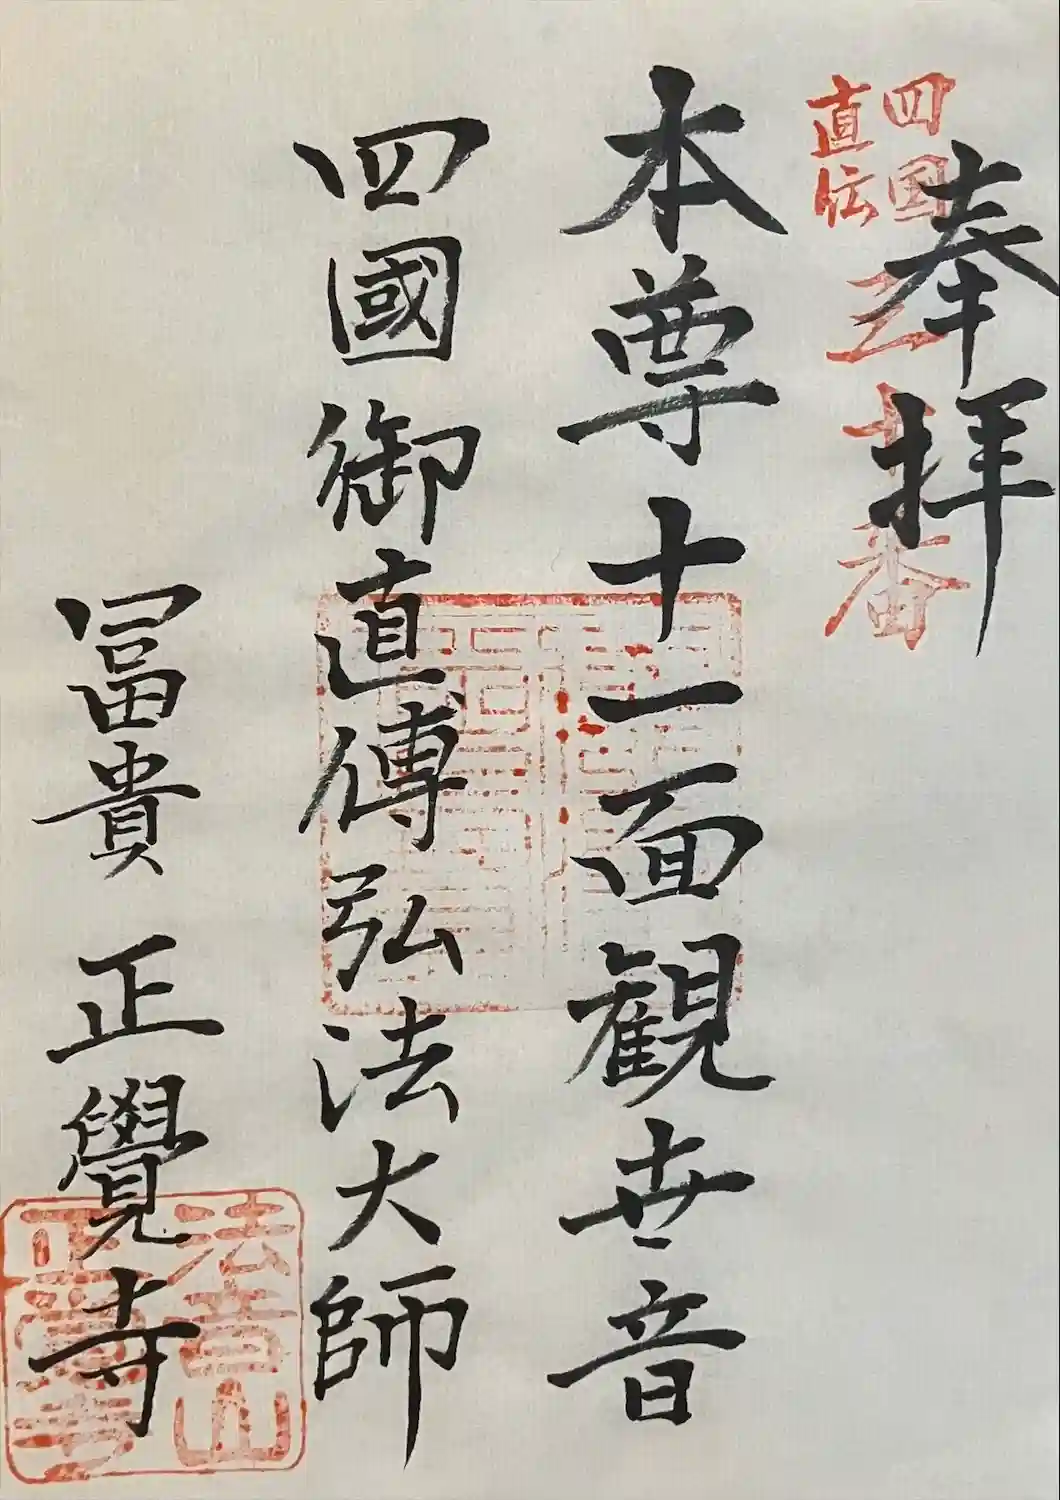 奉拝
四国
直伝
三十番
本尊十一面観世音
四國御直傳弘法大師
冨貴 正覺寺
法音山
正覺寺